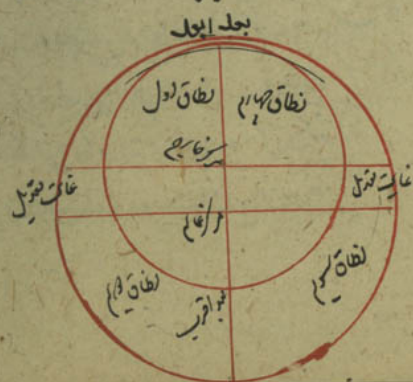 بعد ابعد
نطاق چهارم
نطاق اول
مرکز خارج
غایت تعدیل
غایت تعدیل
مرکز عالم
نطاق سوم
نطاق دوم
بعد اقرب